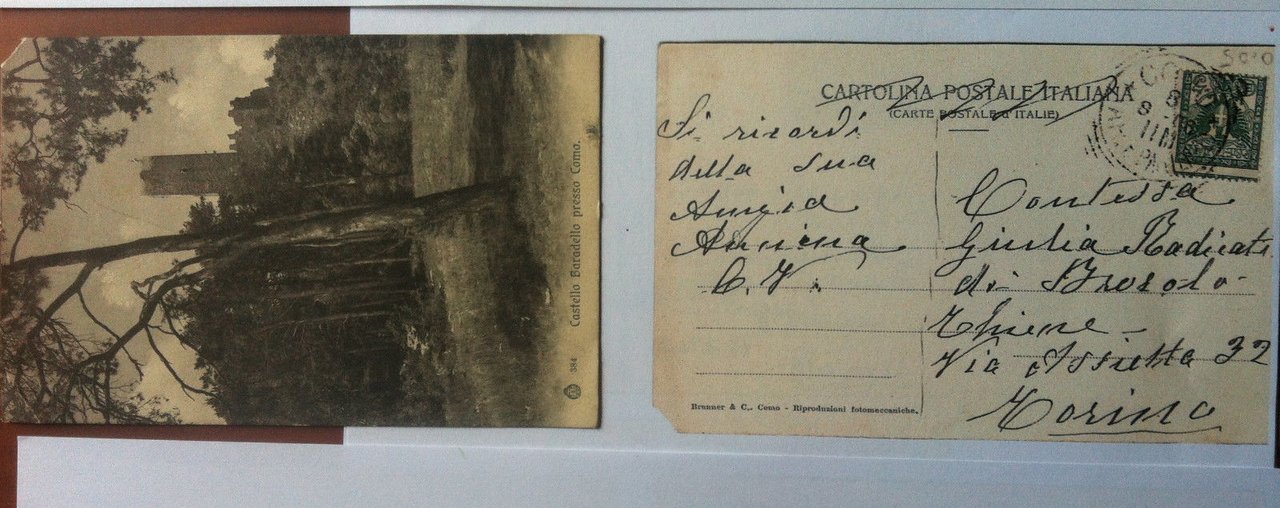 Castello Baradello presso Como.
3814
CARTOLINA POSTALE ITALIANA
(CARTE POSTALE d'ITALIE)
Si ricordi
della sua
Amica
Annina
C. V.
Contessa
Giulia Radicati
di Brosolo
Via Assietta 32
Torino
Brunner & C., Como - Riproduzioni fotomeccaniche.